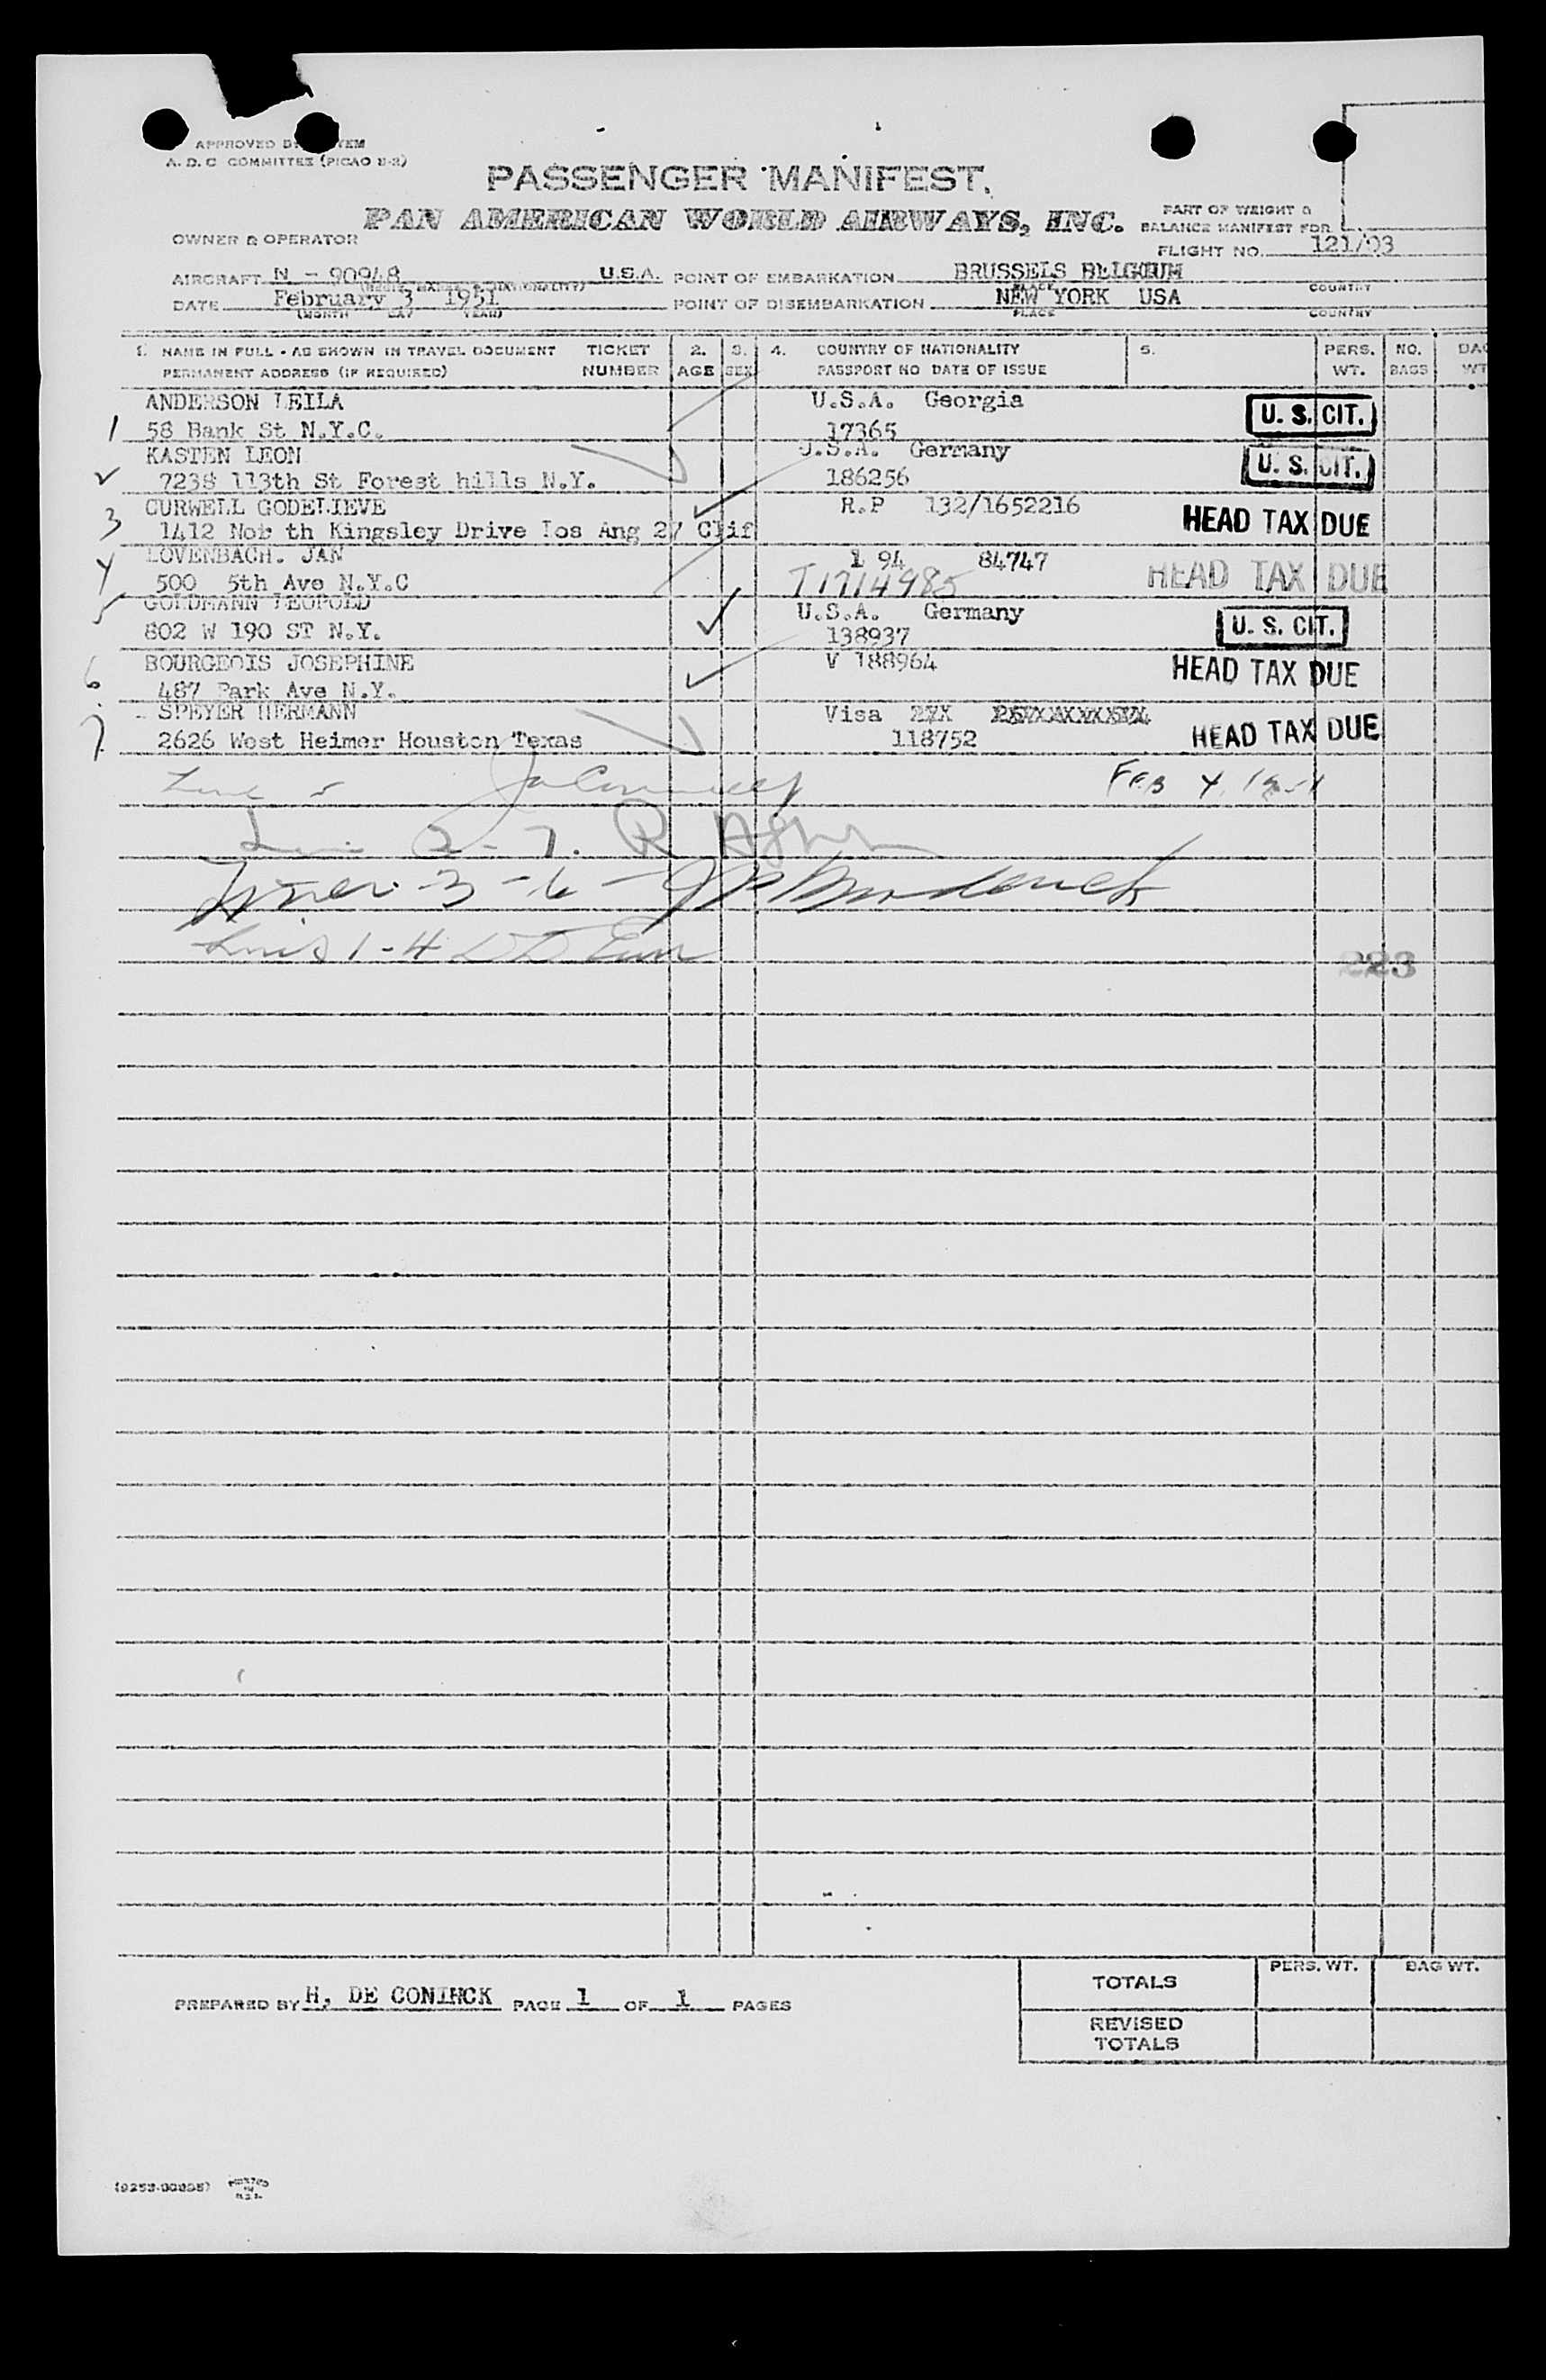 APPROVED BY
A. D. C COMMITTEE (PICAO S-2)
PASSENGER MANIFEST.
PAN AMERICAN WORLD AIRWAYS, INC.
PART OF WEIGHT &
BALANCE MANIFEST FOR
OWNER & OPERATOR
FLIGHT NO. 121/03
AIRCRAFT N - 90948 U.S.A. POINT OF EMBARKATION BRUSSELS BELGIUM
PLACE COUNTRY
DATE February 3 1951 POINT OF DISEMBARKATION NEW YORK USA
(MONTH DAY YEAR) PLACE COUNTRY
1. NAME IN FULL - AS SHOWN IN TRAVEL DOCUMENT TICKET 2. 3. 4. COUNTRY OF NATIONALITY 5. PERS. NO. BAG
PERMANENT ADDRESS (IF REQUIRED) NUMBER AGE SEX PASSPORT NO DATE OF ISSUE WT. BAGS WT
ANDERSON LEILA U.S.A. Georgia U. S. CIT.
1 58 Bank St N.Y.C. 17365
KASTEN LEON U.S.A. Germany U. S. CIT.
2 7238 113th St Forest hills N.Y. 186256
CURWELL GODELIEVE R.P 132/1652216 HEAD TAX DUE
3 1412 Nor th Kingsley Drive Los Ang 27 Clif
LOVENBACH. JAN 1 94 84747 HEAD TAX DUE
4 500 5th Ave N.Y.C T1714985
5 GOLDMANN LEOPOLD U.S.A. Germany U. S. CIT.
802 W 190 ST N.Y. 138937
6 BOURGEOIS JOSEPHINE V 188964 HEAD TAX DUE
487 Park Ave N.Y.
7 SPEYER HERMANN Visa HEAD TAX DUE
2626 West Heimer Houston Texas 118752
Line 5 Feb 4, 1951
2 - 7. R
Lines 3 - 6 -
Lines 1 - 4
223
TOTALS PERS. WT. BAG WT.
PREPARED BY H, DE CONINCK PAGE 1 OF 1 PAGES
REVISED
TOTALS
PRINTED
IN
U.S.A.